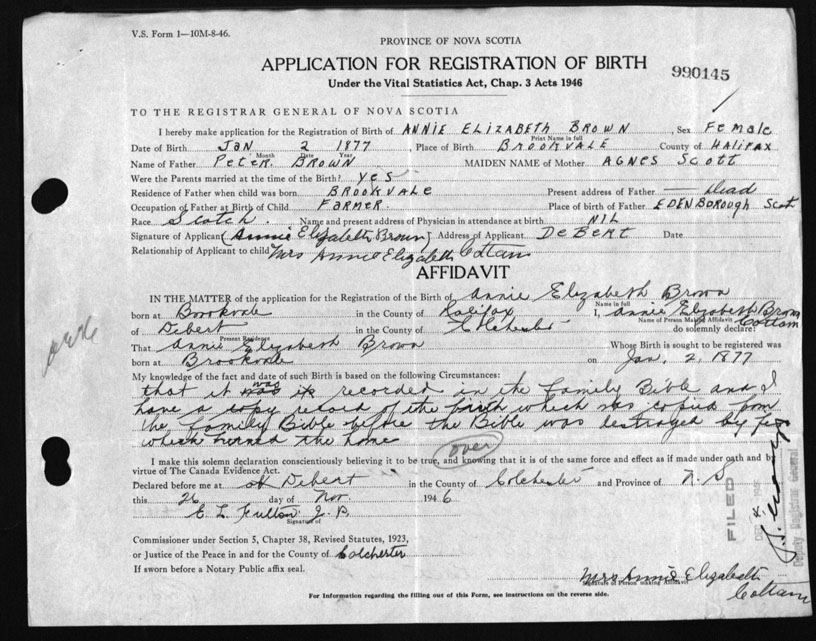 V.S. Form 1—10M-8-46.
PROVINCE OF NOVA SCOTIA
APPLICATION FOR REGISTRATION OF BIRTH
990145
Under the Vital Statistics Act, Chap. 3 Acts 1946
TO THE REGISTRAR GENERAL OF NOVA SCOTIA
I hereby make application for the Registration of Birth of ANNIE ELIZABETH BROWN, Sex Female
Print Name in full
Date of Birth JAN 2 1877, Place of Birth BROOKVALE County of HALIFAX
Month Date Year
Name of Father PETER BROWN MAIDEN NAME of Mother AGNES SCOTT
Were the Parents married at the time of the Birth? yes
Residence of Father when child was born BROOKVALE Present address of Father — Dead
Occupation of Father at Birth of Child FARMER. Place of birth of Father EDENBOROUGH Scot
Race Scotch. Name and present address of Physician in attendance at birth NIL
Signature of Applicant (Annie Elizabeth Brown) Address of Applicant DEBERT Date
Relationship of Applicant to child Mrs Annie Elizabeth Cottam
AFFIDAVIT
IN THE MATTER of the application for the Registration of the Birth of Annie Elizabeth Brown
Name in full
born at Brookvale in the County of Halifax I, Annie Elizabeth Brown
Name of Person Making Affidavit Cottam
of Debert in the County of Colchester do solemnly declare:
Present Residence
That Annie Elizabeth Brown Whose Birth is sought to be registered was
born at Brookvale on Jan. 2, 1877
My knowledge of the fact and date of such Birth is based on the following Circumstances:
that it was recorded in the family Bible and I
have a copy record of the birth which was copied from
the family Bible before the Bible was destroyed by fire
which burned the home
over
I make this solemn declaration conscientiously believing it to be true, and knowing that it is of the same force and effect as if made under oath and by
virtue of The Canada Evidence Act.
Declared before me at Debert in the County of Colchester and Province of N. S
this 26 day of Nov. 1946
E. L. Fulton J. P.
Signature of
Commissioner under Section 5, Chapter 38, Revised Statutes, 1923,
or Justice of the Peace in and for the County of Colchester
If sworn before a Notary Public affix seal.
Mrs Annie Elizabeth
Signature of Person making Affidavit
Cottam
For Information regarding the filling out of this Form, see instructions on the reverse side.
FILED
Deputy Registrar General